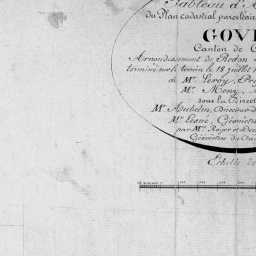 Tableau d'A
du Plan cadastral parcellaire
GOVE
Canton de G
Arrondissement de Redon
terminé sur le terrein le 18 juillet
de Mr. Leroy, Pr
Mr. Mony,
sous la Direct
Mr. Auhelin, Directeur d
Mr. Lesné, Géomètre
par Mr. Royer et De
Géomètres du Cad
Échelle de